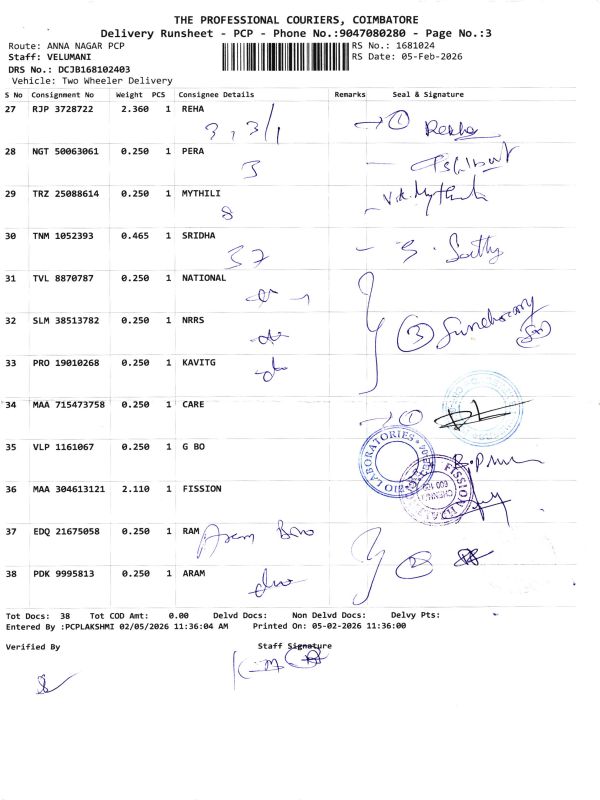 THE PROFESSIONAL COURIERS, COIMBATORE
Delivery Runsheet - PCP - Phone No.:9047080280 - Page No.:3
Route: ANNA NAGAR PCP RS No.: 1681024
Staff: VELUMANI RS Date: 05-Feb-2026
DRS No.: DCJB168102403
Vehicle: Two Wheeler Delivery
S No Consignment No Weight PCS Consignee Details Remarks Seal & Signature
27 RJP 3728722 2.360 1 REHA
3, 3/1 → 1 Rekha
28 NGT 50063061 0.250 1 PERA
3
29 TRZ 25088614 0.250 1 MYTHILI
8
30 TNM 1052393 0.465 1 SRIDHA
37
31 TVL 8870787 0.250 1 NATIONAL
32 SLM 38513782 0.250 1 NRRS
3
33 PRO 19010268 0.250 1 KAVITG
34 MAA 715473758 0.250 1 CARE
→ 1
35 VLP 1161067 0.250 1 G BO
BIO LABORATORIES
36 MAA 304613121 2.110 1 FISSION
FISSION
CHENNAI
37 EDQ 21675058 0.250 1 RAM
2
38 PDK 9995813 0.250 1 ARAM
Tot Docs: 38 Tot COD Amt: 0.00 Delvd Docs: Non Delvd Docs: Delvy Pts:
Entered By :PCPLAKSHMI 02/05/2026 11:36:04 AM Printed On: 05-02-2026 11:36:00
Verified By Staff Signature